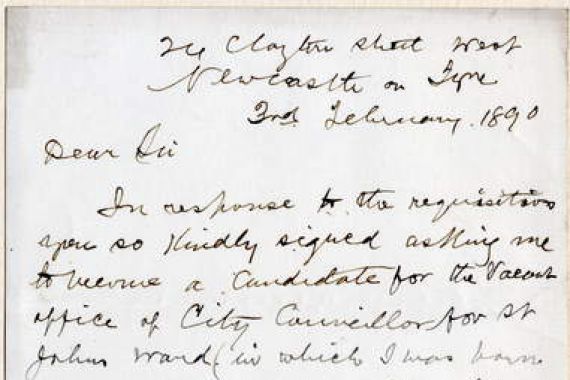 24 Clayton Street West
Newcastle on Tyne
3rd February. 1890
Dear Sir
In response to the requisition
you so kindly signed asking me
to become a Candidate for the Vacant
office of City Councillor for St
Johns Ward (in which I was born